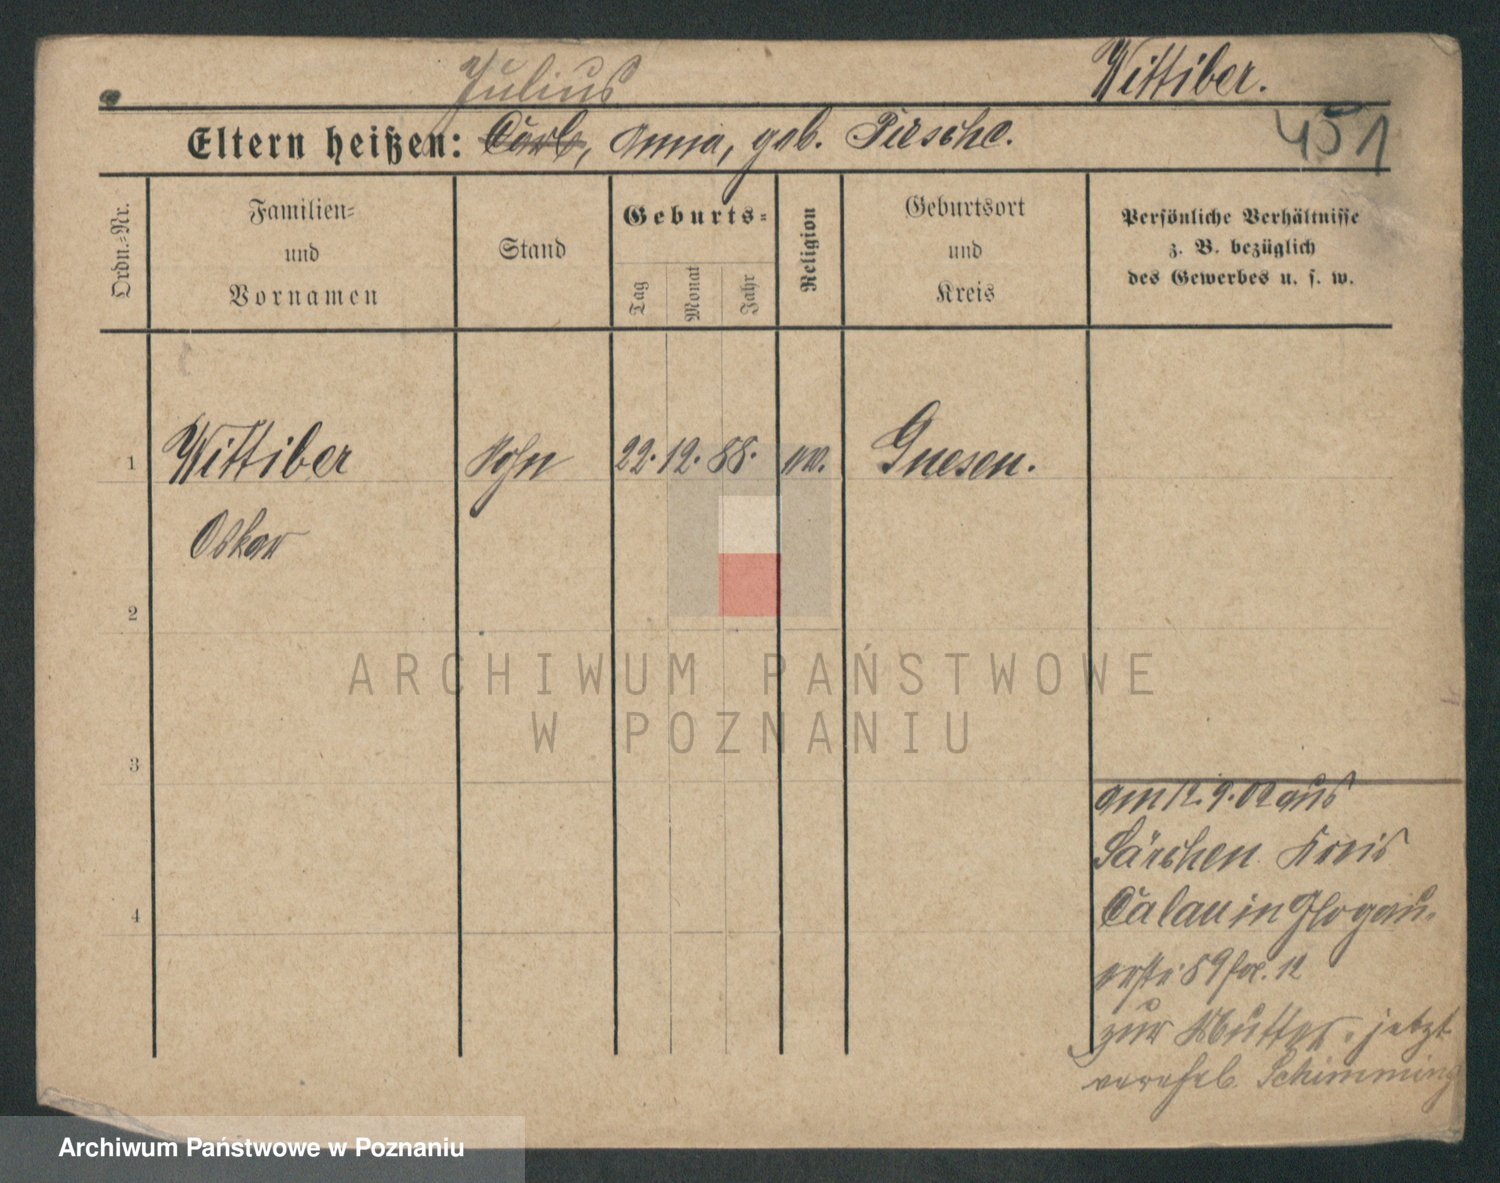 Julius
Wittiber.
Eltern heißen: Carl, Anna, geb. Piesche.
451
Ordn.-Nr.
Familien-
und
Vornamen
Stand
Geburts-
Tag
Monat
Jahr
Religion
Geburtsort
und
Kreis
Persönliche Verhältnisse
z. B. bezüglich
des Gewerbes u. s. w.
1 Wittiber Sohn 22. 12. 88. ev. Gnesen.
Oskar
2
3
4
am 12.9.02 aus
Särchen Kreis
Calau in Glogau
89 12
zur Mutter, jetzt
verehel. Schimming
ARCHIWUM PAŃSTWOWE
W POZNANIU
Archiwum Państwowe w Poznaniu